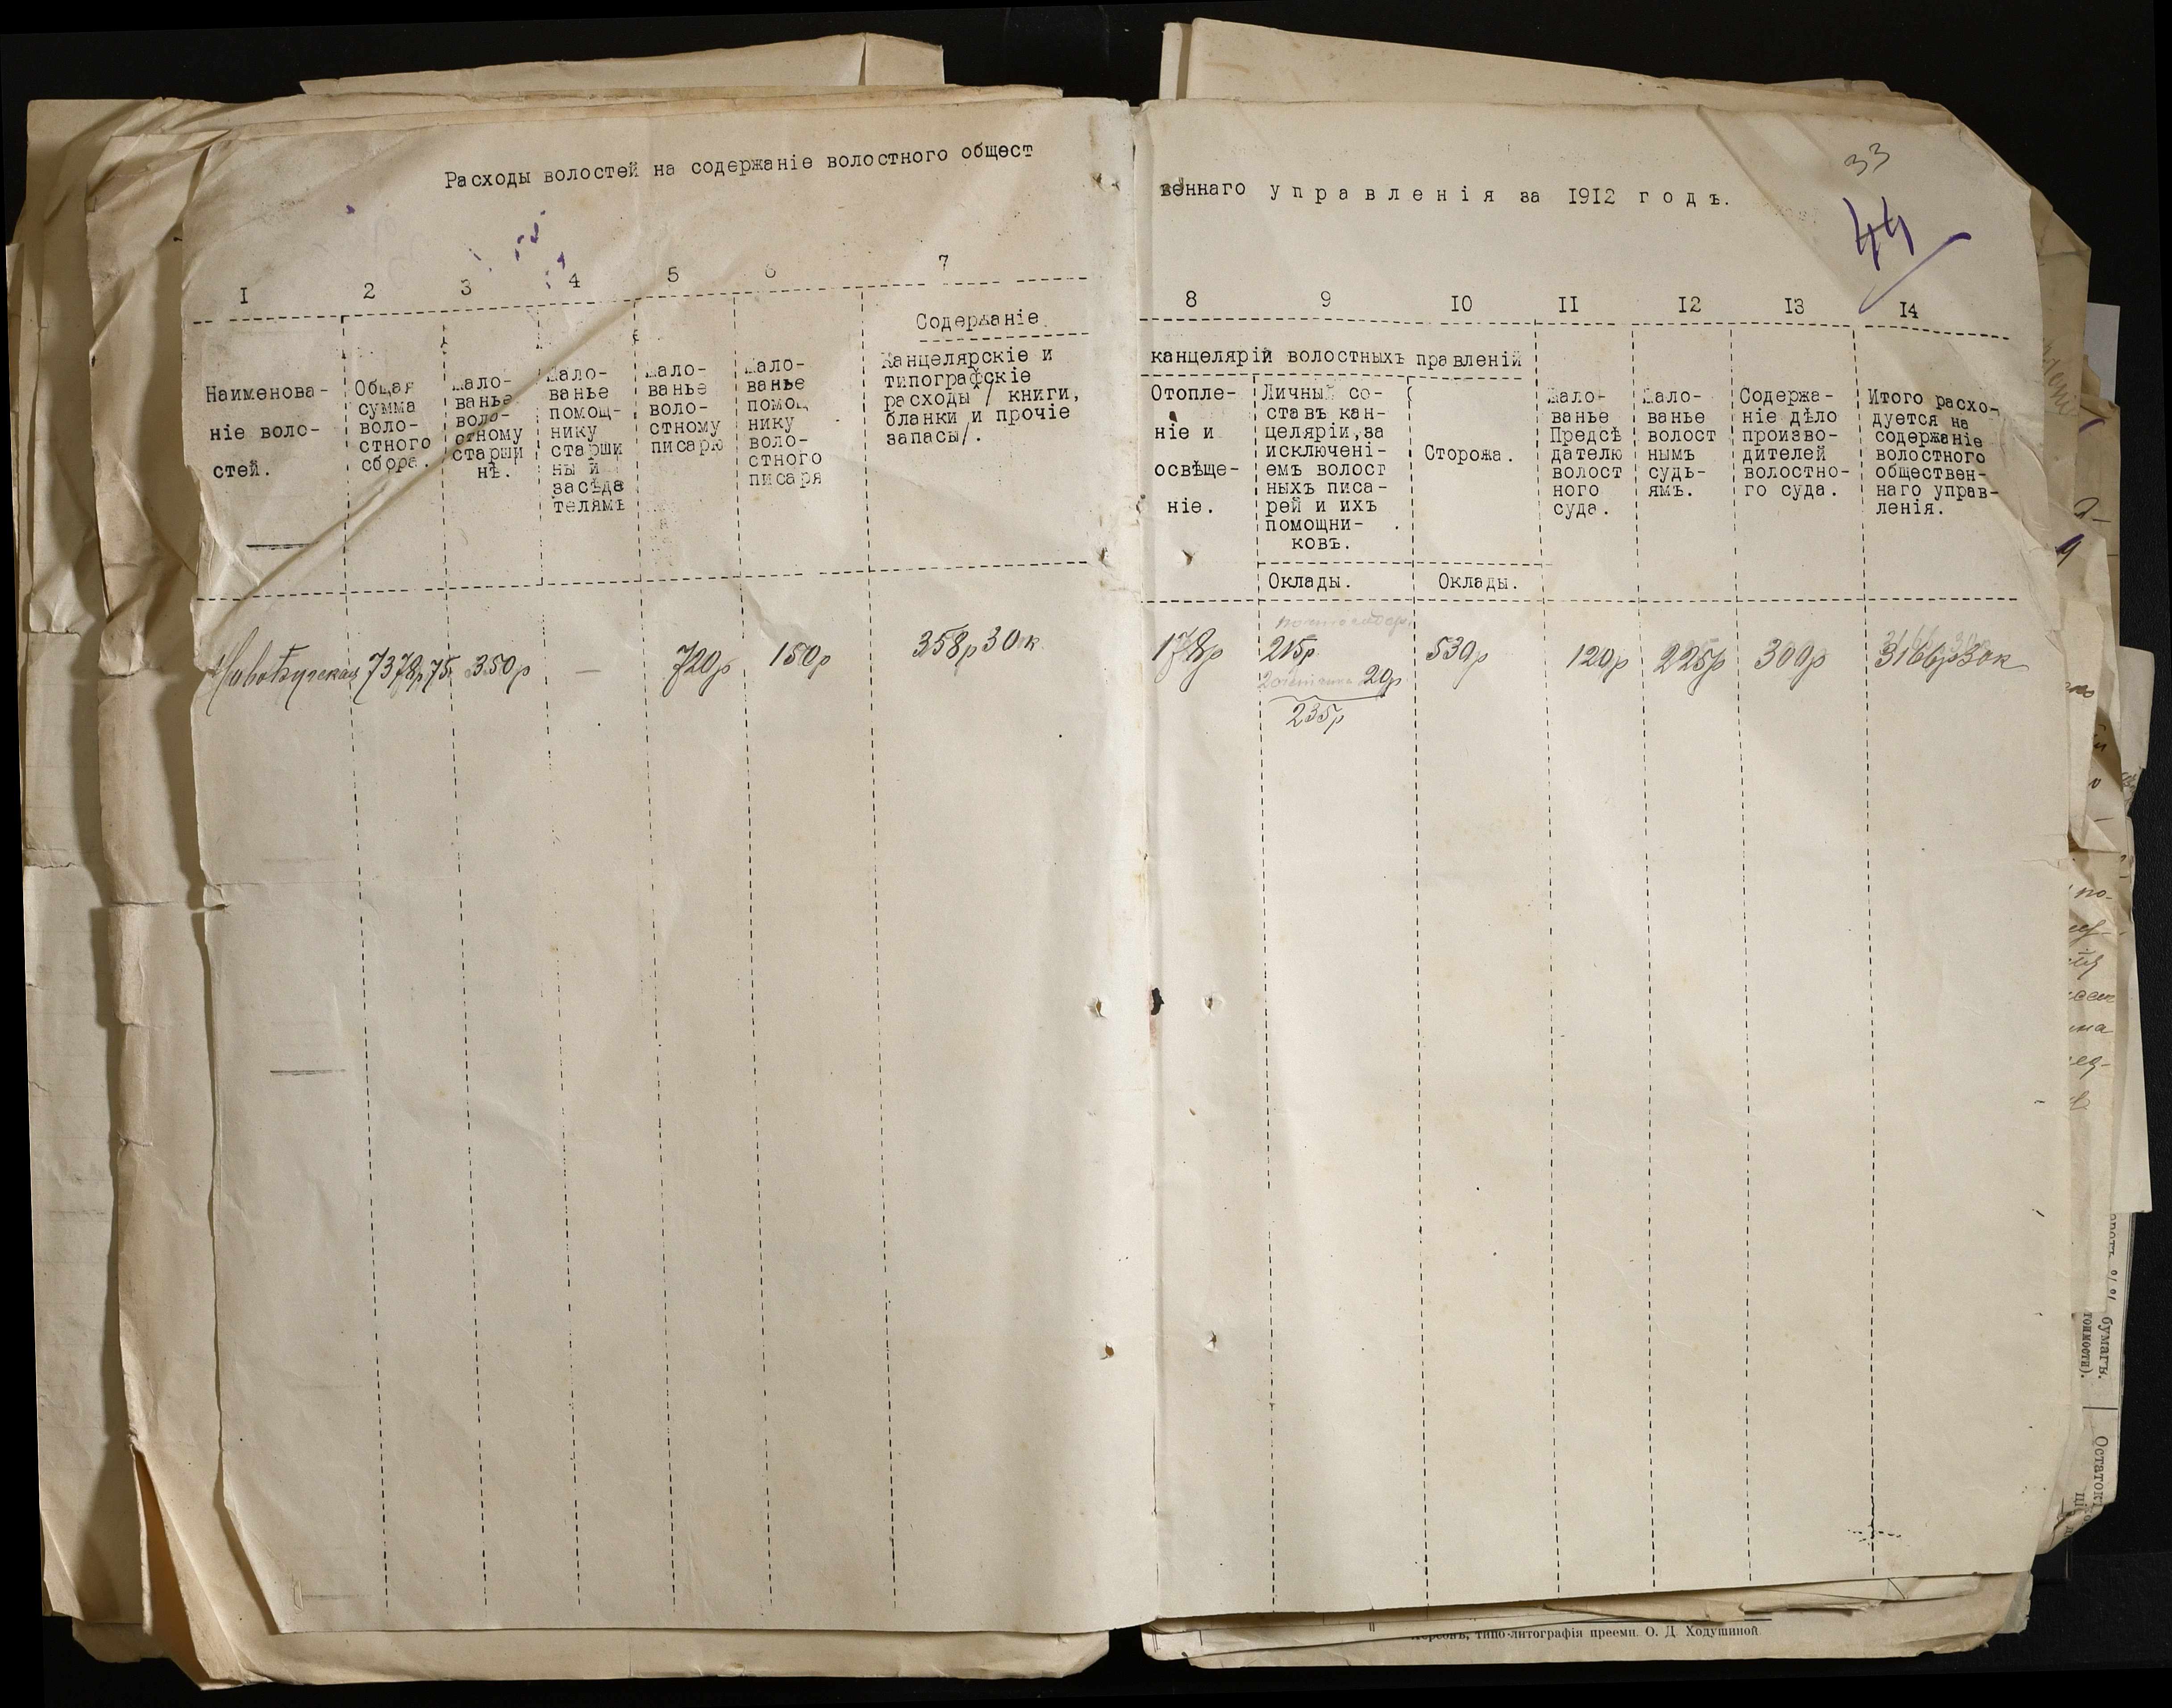 Расходы волостей на содержаніе волостного общест
веннаго управленія за 1912 годъ.
33
44
I 2 3 4 5 6 7
8 9 10 II 12 13 14
Наименова-
ніе воло-
стей.
Общая
сумма
воло-
стного
сбора.
жало-
ванье
воло-
стному
старши
нѣ.
жало-
ванье
помощ-
нику
старши
ны й
засѣда
телямъ
жало-
ванье
воло-
стному
писарю
жало-
ванье
помощ
нику
воло-
стного
писаря
Содержаніе
Канцелярскіе и
типографскіе
расходы / книги,
бланки и прочіе
запасы/.
канцелярій волостныхъ правленій
Отопле-
ніе и
освѣще-
ніе.
Личный со-
ставъ кан-
целяріи,за
исключені-
емъ волост
ныхъ писа-
рей и ихъ
помощни-
ковъ.
Оклады.
Сторожа.
Оклады.
жало-
ванье
Предсѣ
дателю
волост
ного
суда.
жало-
ванье
волост
нымъ
судь-
ямъ.
Содержа-
ніе дѣло
произво-
дителей
волостно-
го суда.
Итого расхо-
дуется на
содержаніе
волостного
обществен-
наго управ-
ленія.
Новобугская 7378р75 350р — 720р 150р 358р30к
178р 215р 530р 120р 225р 300р 3166р30к
20р
235р
Херсонъ, типо-литографія преемн. О. Д. Ходушиной
бумагъ.
Остатокъ